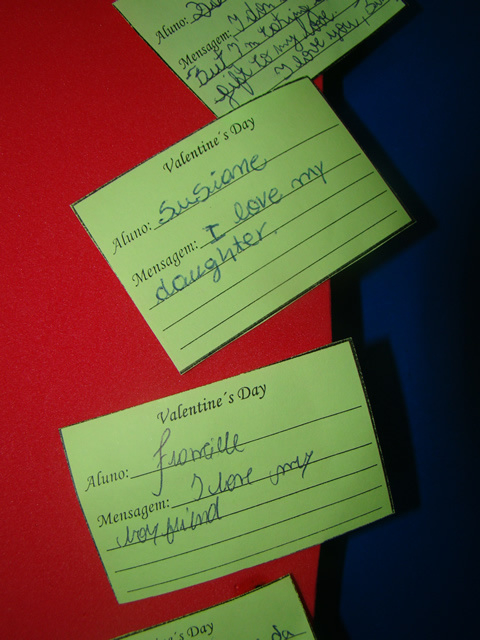 Aluno:
Mensagem: I don
But I'm taking a
gift to my love
I love you,
Valentine's Day
Aluno: Susiane
Mensagem: I love my
daughter.
Valentine's Day
Aluno: Francielle
Mensagem: I love my
boyfriend
Valentine's Day